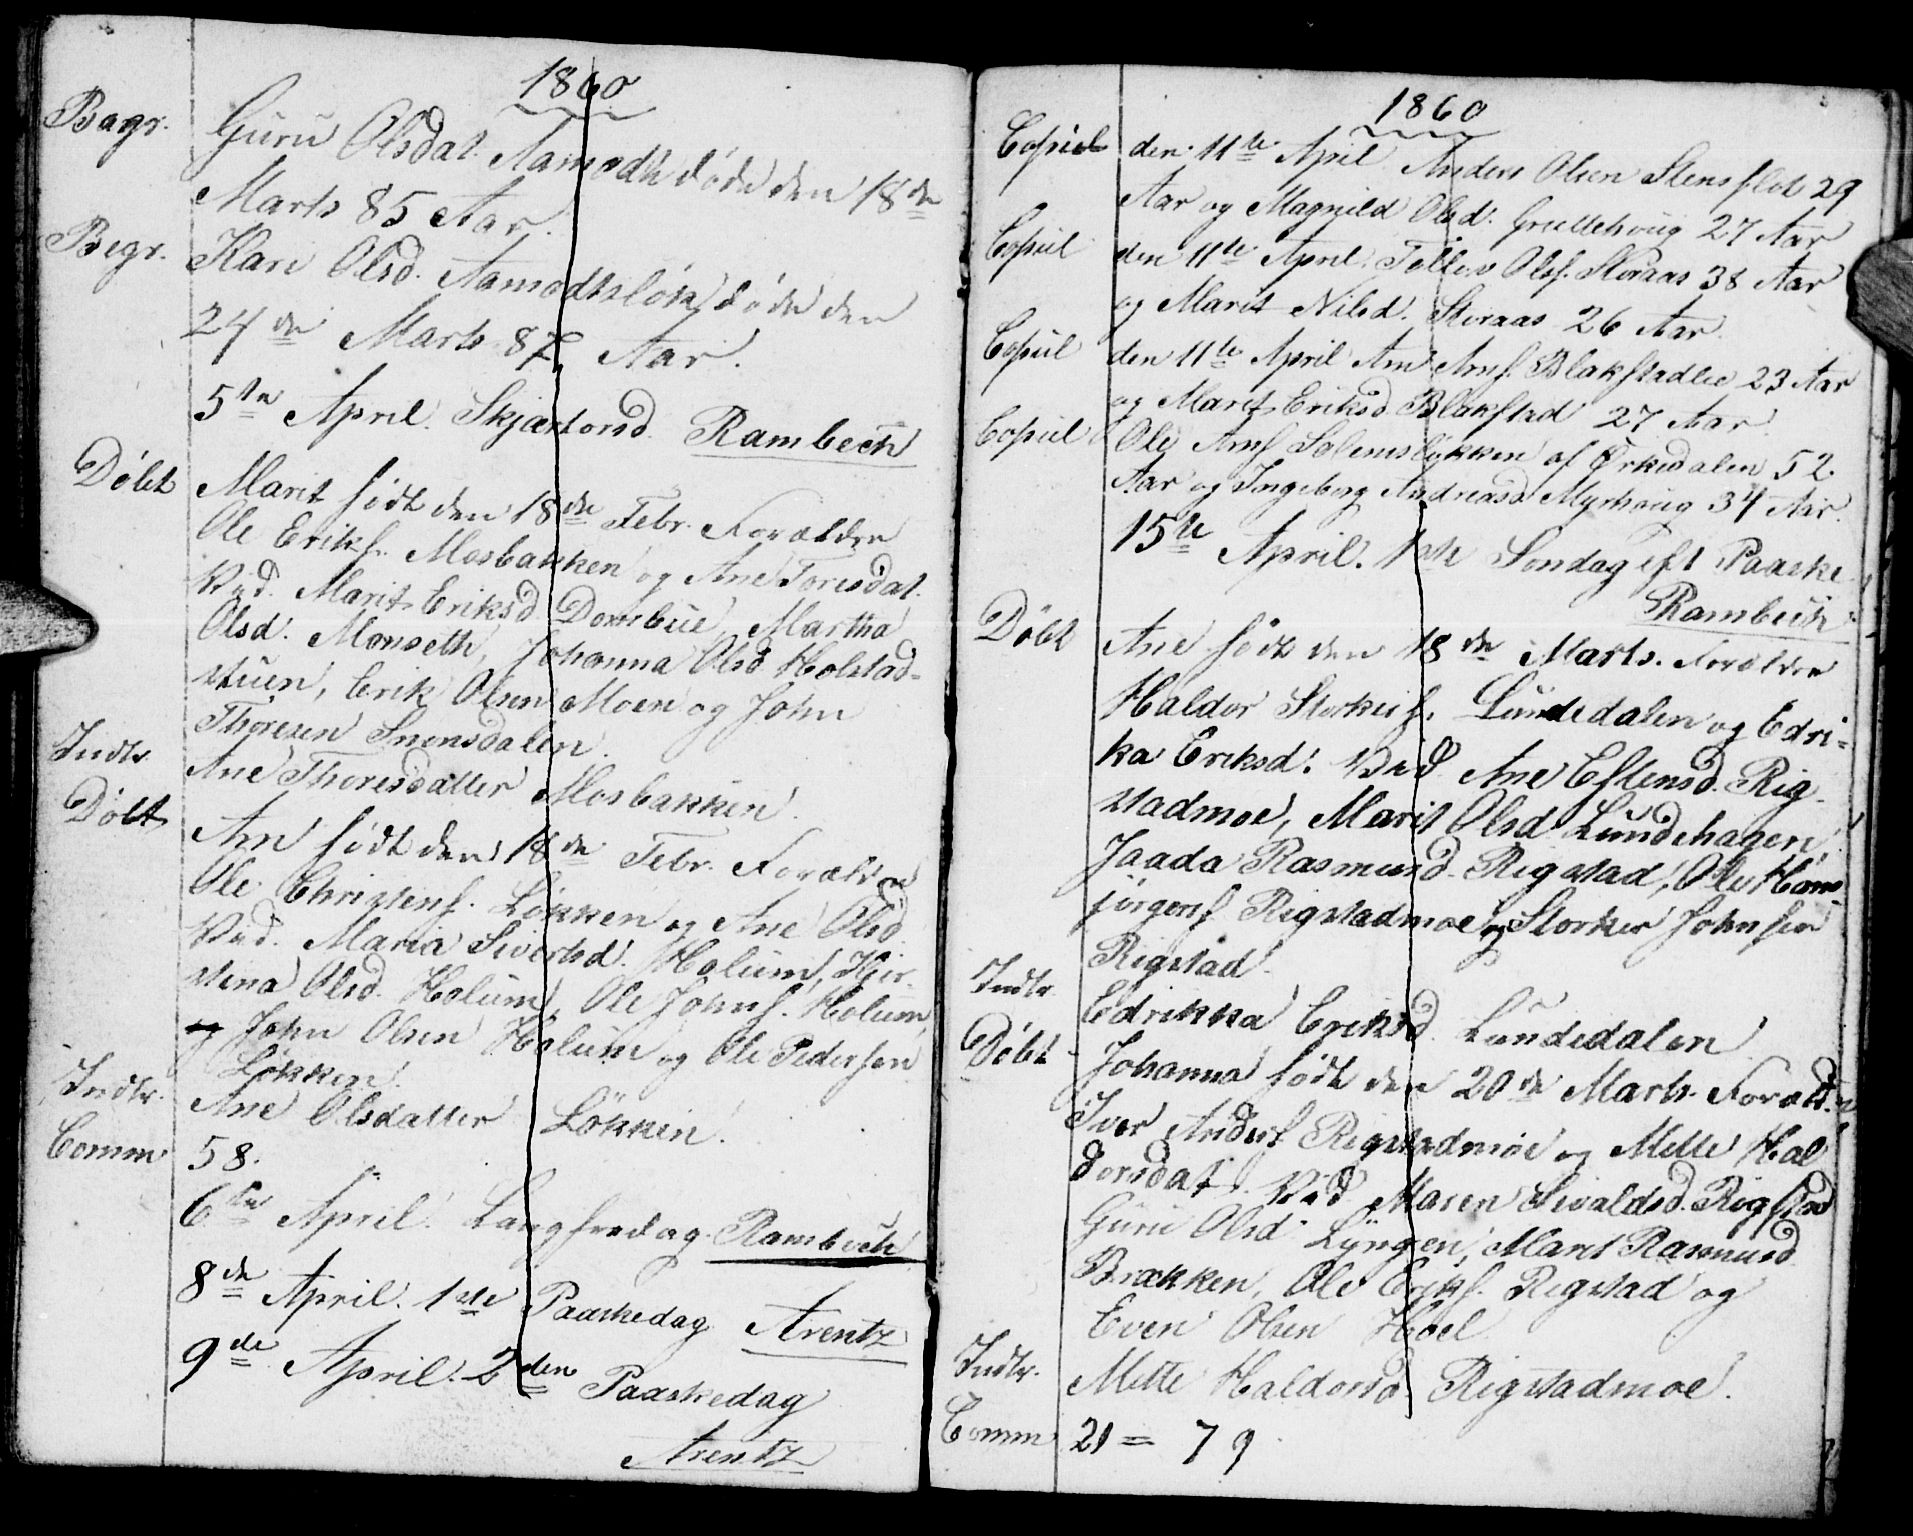 1860
Begr. Guru Olsdat. Aamodt døde den 18de
Marts 85 Aar.
Begr. Kari Olsd. Aamodtsløk døde den
24de Marts 87 Aar.
5te April. Skjærtorsd. Rambech
Döbt Marit født den 18de Febr. Forældre
Ole Eriks. Mosbakken og Ane Toresdat.
Ved. Marit Eriksd. Dombue, Martha
Olsd. Monseth, Johanna Olsd. Holstad-
stuen, Erik Olsen Moen og John
Thoresen Snensdalen.
Indtr. Ane Thoresdatter Mosbakken.
Döbt Arn født den 18de Febr. Forældre
Ole Christens. Løkken og Ane Olsd.
Ved. Maria Sivertsd. Holum, Kjir-
stina Olsd. Holum, Ole Johns. Holum,
og John Olsen Holum og Ole Pedersen
Løkken.
Indtr. Ane Olsdatter Løkken.
Comm 58.
6te April. Langfredag. Rambech
8de April. 1ste Paaskedag Arentz
9de April. 2den Paaskedag
Arentz
1860
Copul den 11te April Anders Olsen Stensflot 29
Aar og Magnild Olsd. Grullehoug 27 Aar
Copul den 11te April. Tollev Ols. Storaas 38 Aar
og Marit Nilsd. Storaas 26 Aar.
Copul den 11te April Arn Arns. Blakstadlie 23 Aar
og Marit Eriksd. Blakstad 27 Aar.
Copul Ole Arns. Solemsløkken af Ørkedalen 52
Aar og Ingeborg Andreasd. Myrhoug 34 Aar.
15te April. 1ste Søndag eft Paaske.
Rambech
Döbt Ane født den 18de Marts. Forældre
Haldor Storkers. Lundedalen og Edri-
ka Eriksd. Ved Ane Estensd. Rig-
stadmoe, Marit Olsd. Lundehagen,
Jaada Rasmusd. Rigstad, Ole Hans
jörgens. Rigstadmoe og Storker Johnsen
Rigstad.
Indtr. Edrikka Eriksd. Lundedalen
Döbt Johanna født den 20de Marts. Foræld.
Iver Anders. Rigstadmoe og Mette Hal
dorsdat. Ved Maren Sivaldsd. Rigstad
Guru Olsd. Lyngen, Marit Rasmusd.
Brækken, Ole Eriks. Rigstad og
Even Olsen Hoel
Indtr. Mette Haldorsd. Rigstadmoe.
Comm 21 = 79